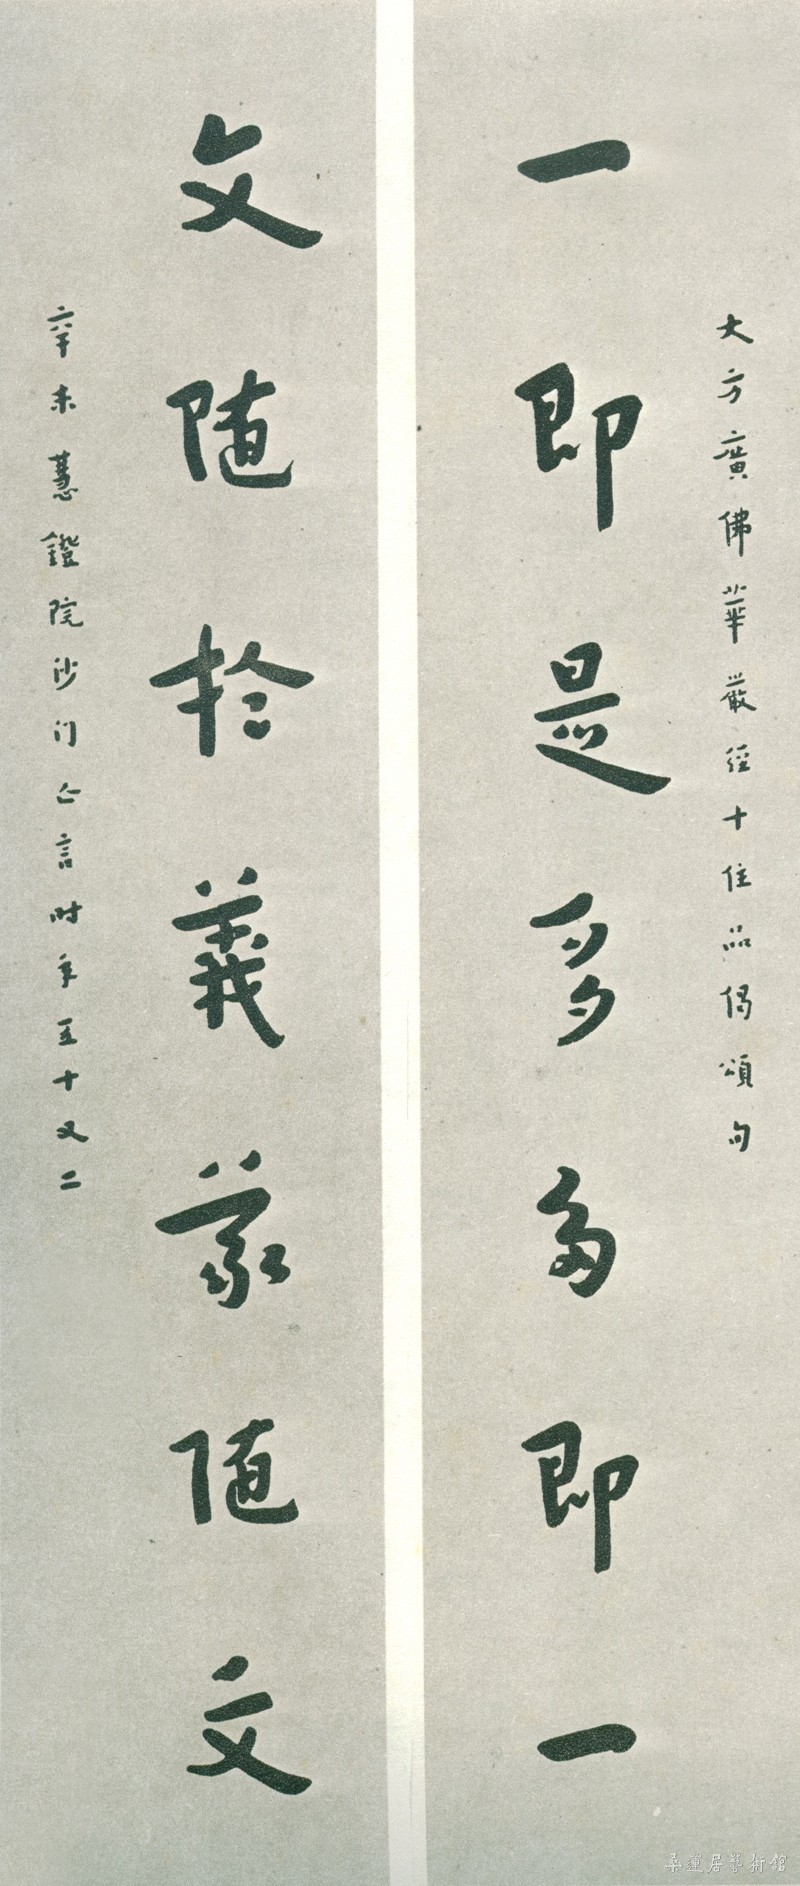 大方廣佛華嚴經十住品偈頌句
一即是多多即一
文随於義義随文
辛未慧鐙院沙门亡言时年五十又二
桑蓮居藝術館